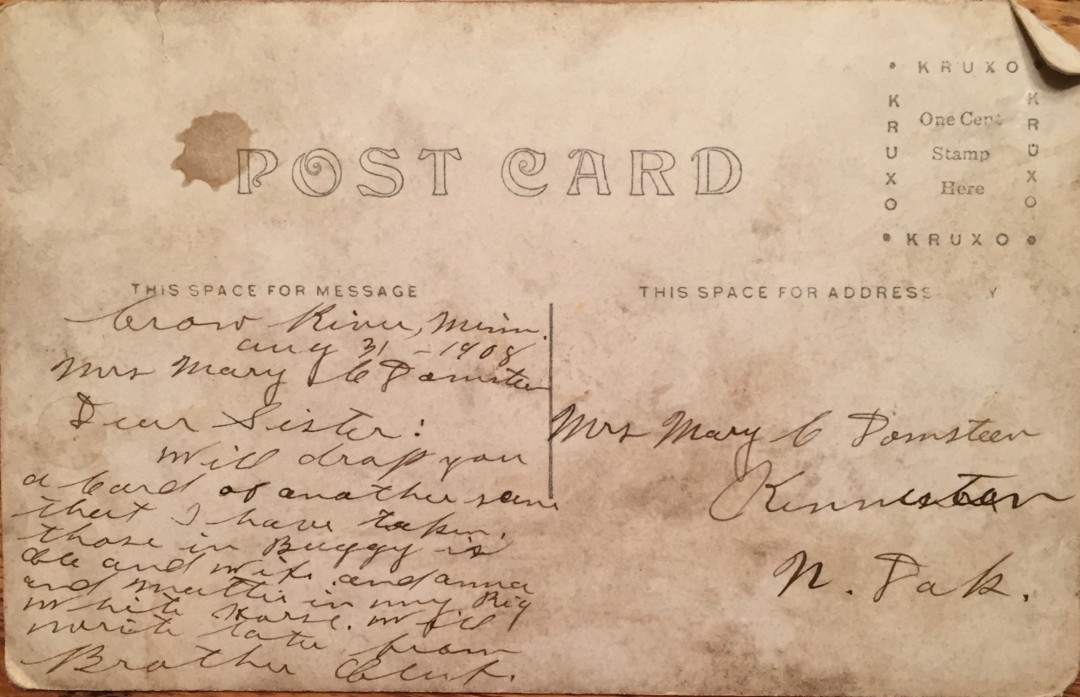 • KRUXO •
KRUXO
KRUXO
One Cent
Stamp
Here
• KRUXO •
POST CARD
THIS SPACE FOR MESSAGE
THIS SPACE FOR ADDRESS Y
Crow River, Minn.
Aug 31 - 1908
Mrs Mary C Domsteen
Dear Sister:
Will drop you
a Card of another
that I have taken.
those in Buggy is
and wife. and anna
and Mattie in my Rig
White Horse. Will
write later from
Brother
Mrs Mary C Domsteen
N. Dak.